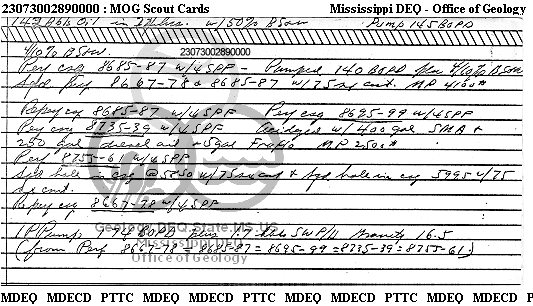 23073002890000 : MOG Scout Cards Mississippi DEQ - Office of Geology
142 Bbls Oil in 24 hrs. w/50% BS&W. Pump 145 BOPD
4/10% BS&W.
23073002890000
Perf csg 8685-87 w/4SPF - Pumped 140 BOPD plus 4/10% BS&W
Sqd Perf 8667-78 & 8685-87 w/75 sx cmt. MP 4100#
Reperf csg 8685-87 w/4SPF Perf csg 8695-99 w/4SPF
Perf csg 8735-39 w/4SPF Acidized w/400 gal SMA &
250 gal diesel oil & 5 gal Fraflo MP 2500#
Perf 8755-61 w/4SPF
Sqd hole in csg @ 5850 w/75 sx cmt & Sqd hole in csg 5995 w/75
sx cmt.
Reperf csg 8667-78 w/4SPF
IP Pump 194 BOPD plus 1.9 bbls SWP/H Gravity 16.5
(from Perf 8667-78 = 8685-87 = 8695-99 = 8735-39 = 8755-61)
Geology.DEQ.State.MS.US
Mississippi DEQ
Office of Geology
MDEQ MDECD PTTC MDEQ MDECD PTTC MDEQ MDECD PTTC MDEQ MDECD P